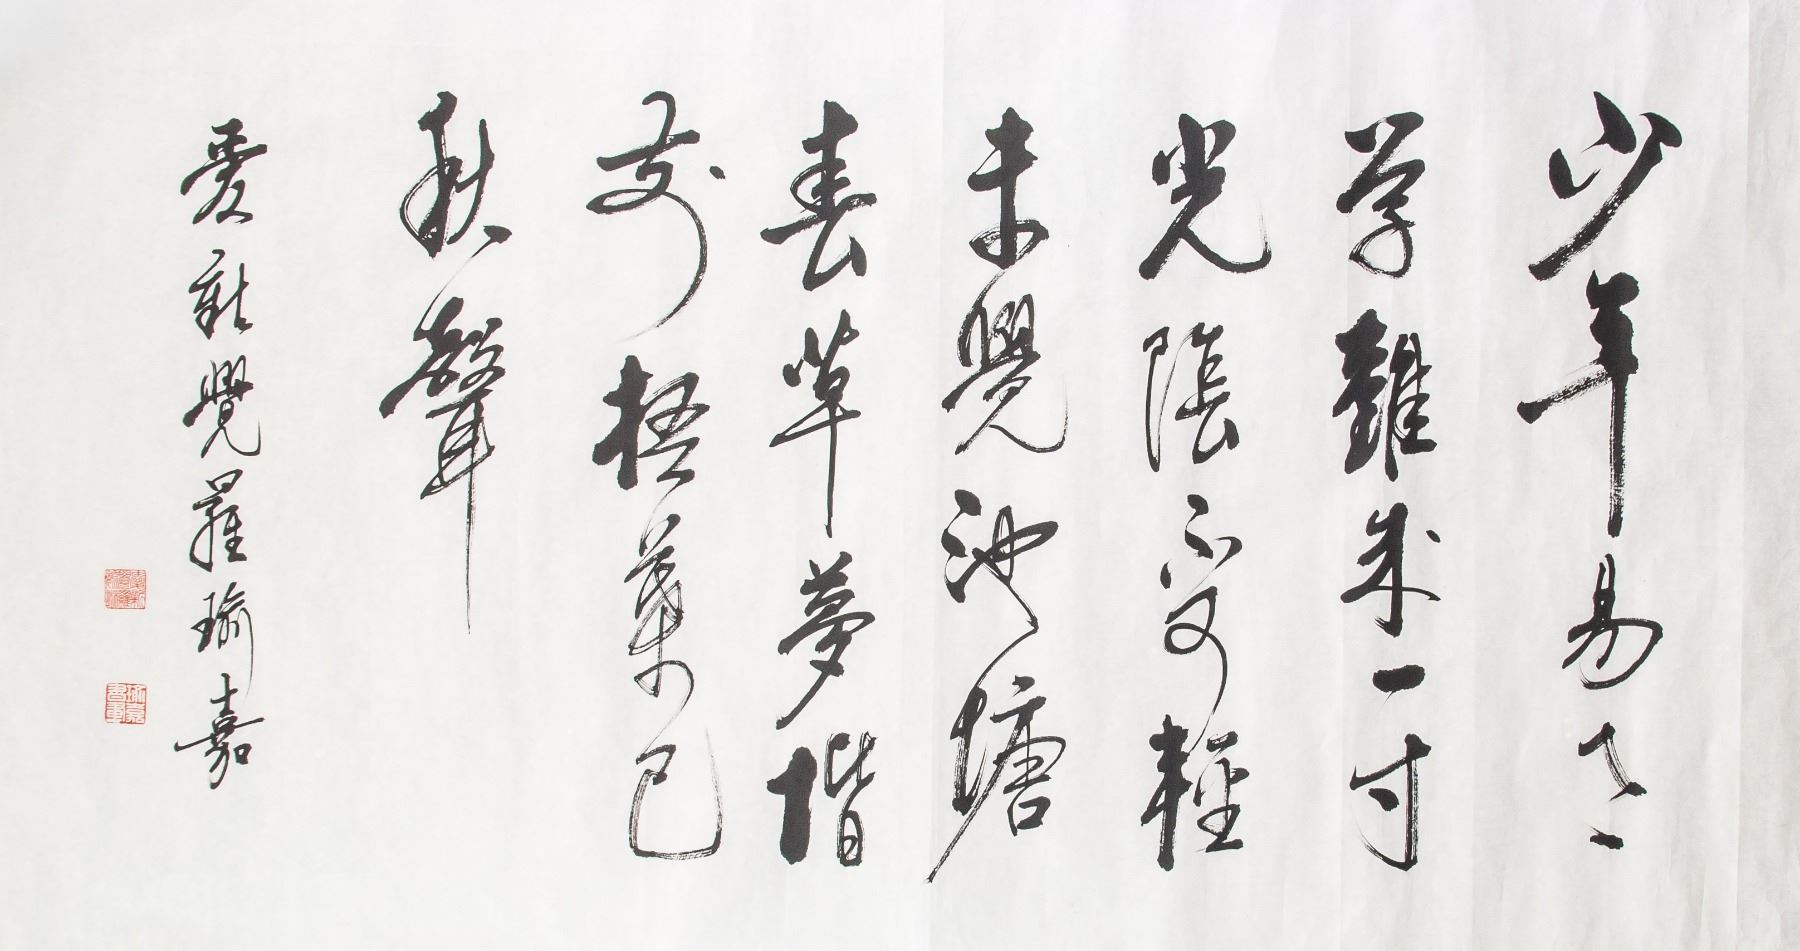 少年易老
学難成一寸
光陰不可輕
未覺池塘
春草夢階
前梧葉已
秋聲
愛新覺羅瑜嘉